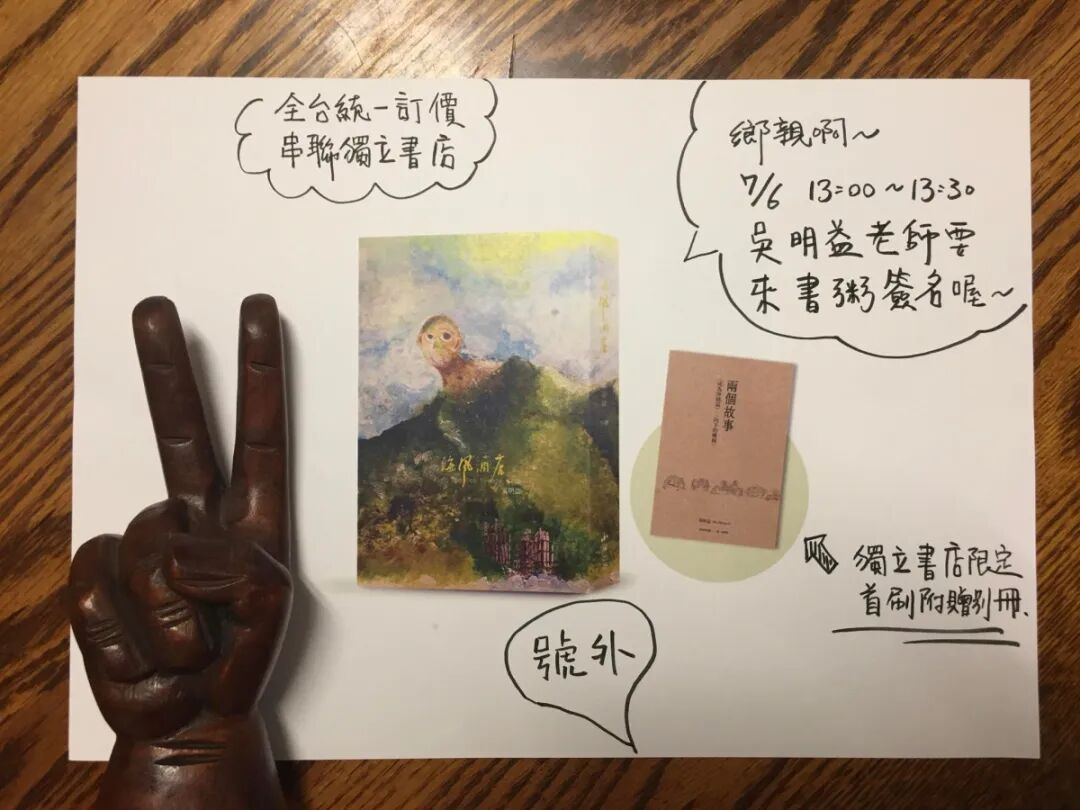 全台統一訂價
串聯獨立書店
鄉親啊～
7/6 13:00～13:30
吳明益老師要
來書粥簽名喔～
海風酒店
吳明益
兩個故事
獨立書店限定
首刷附贈別冊
號外